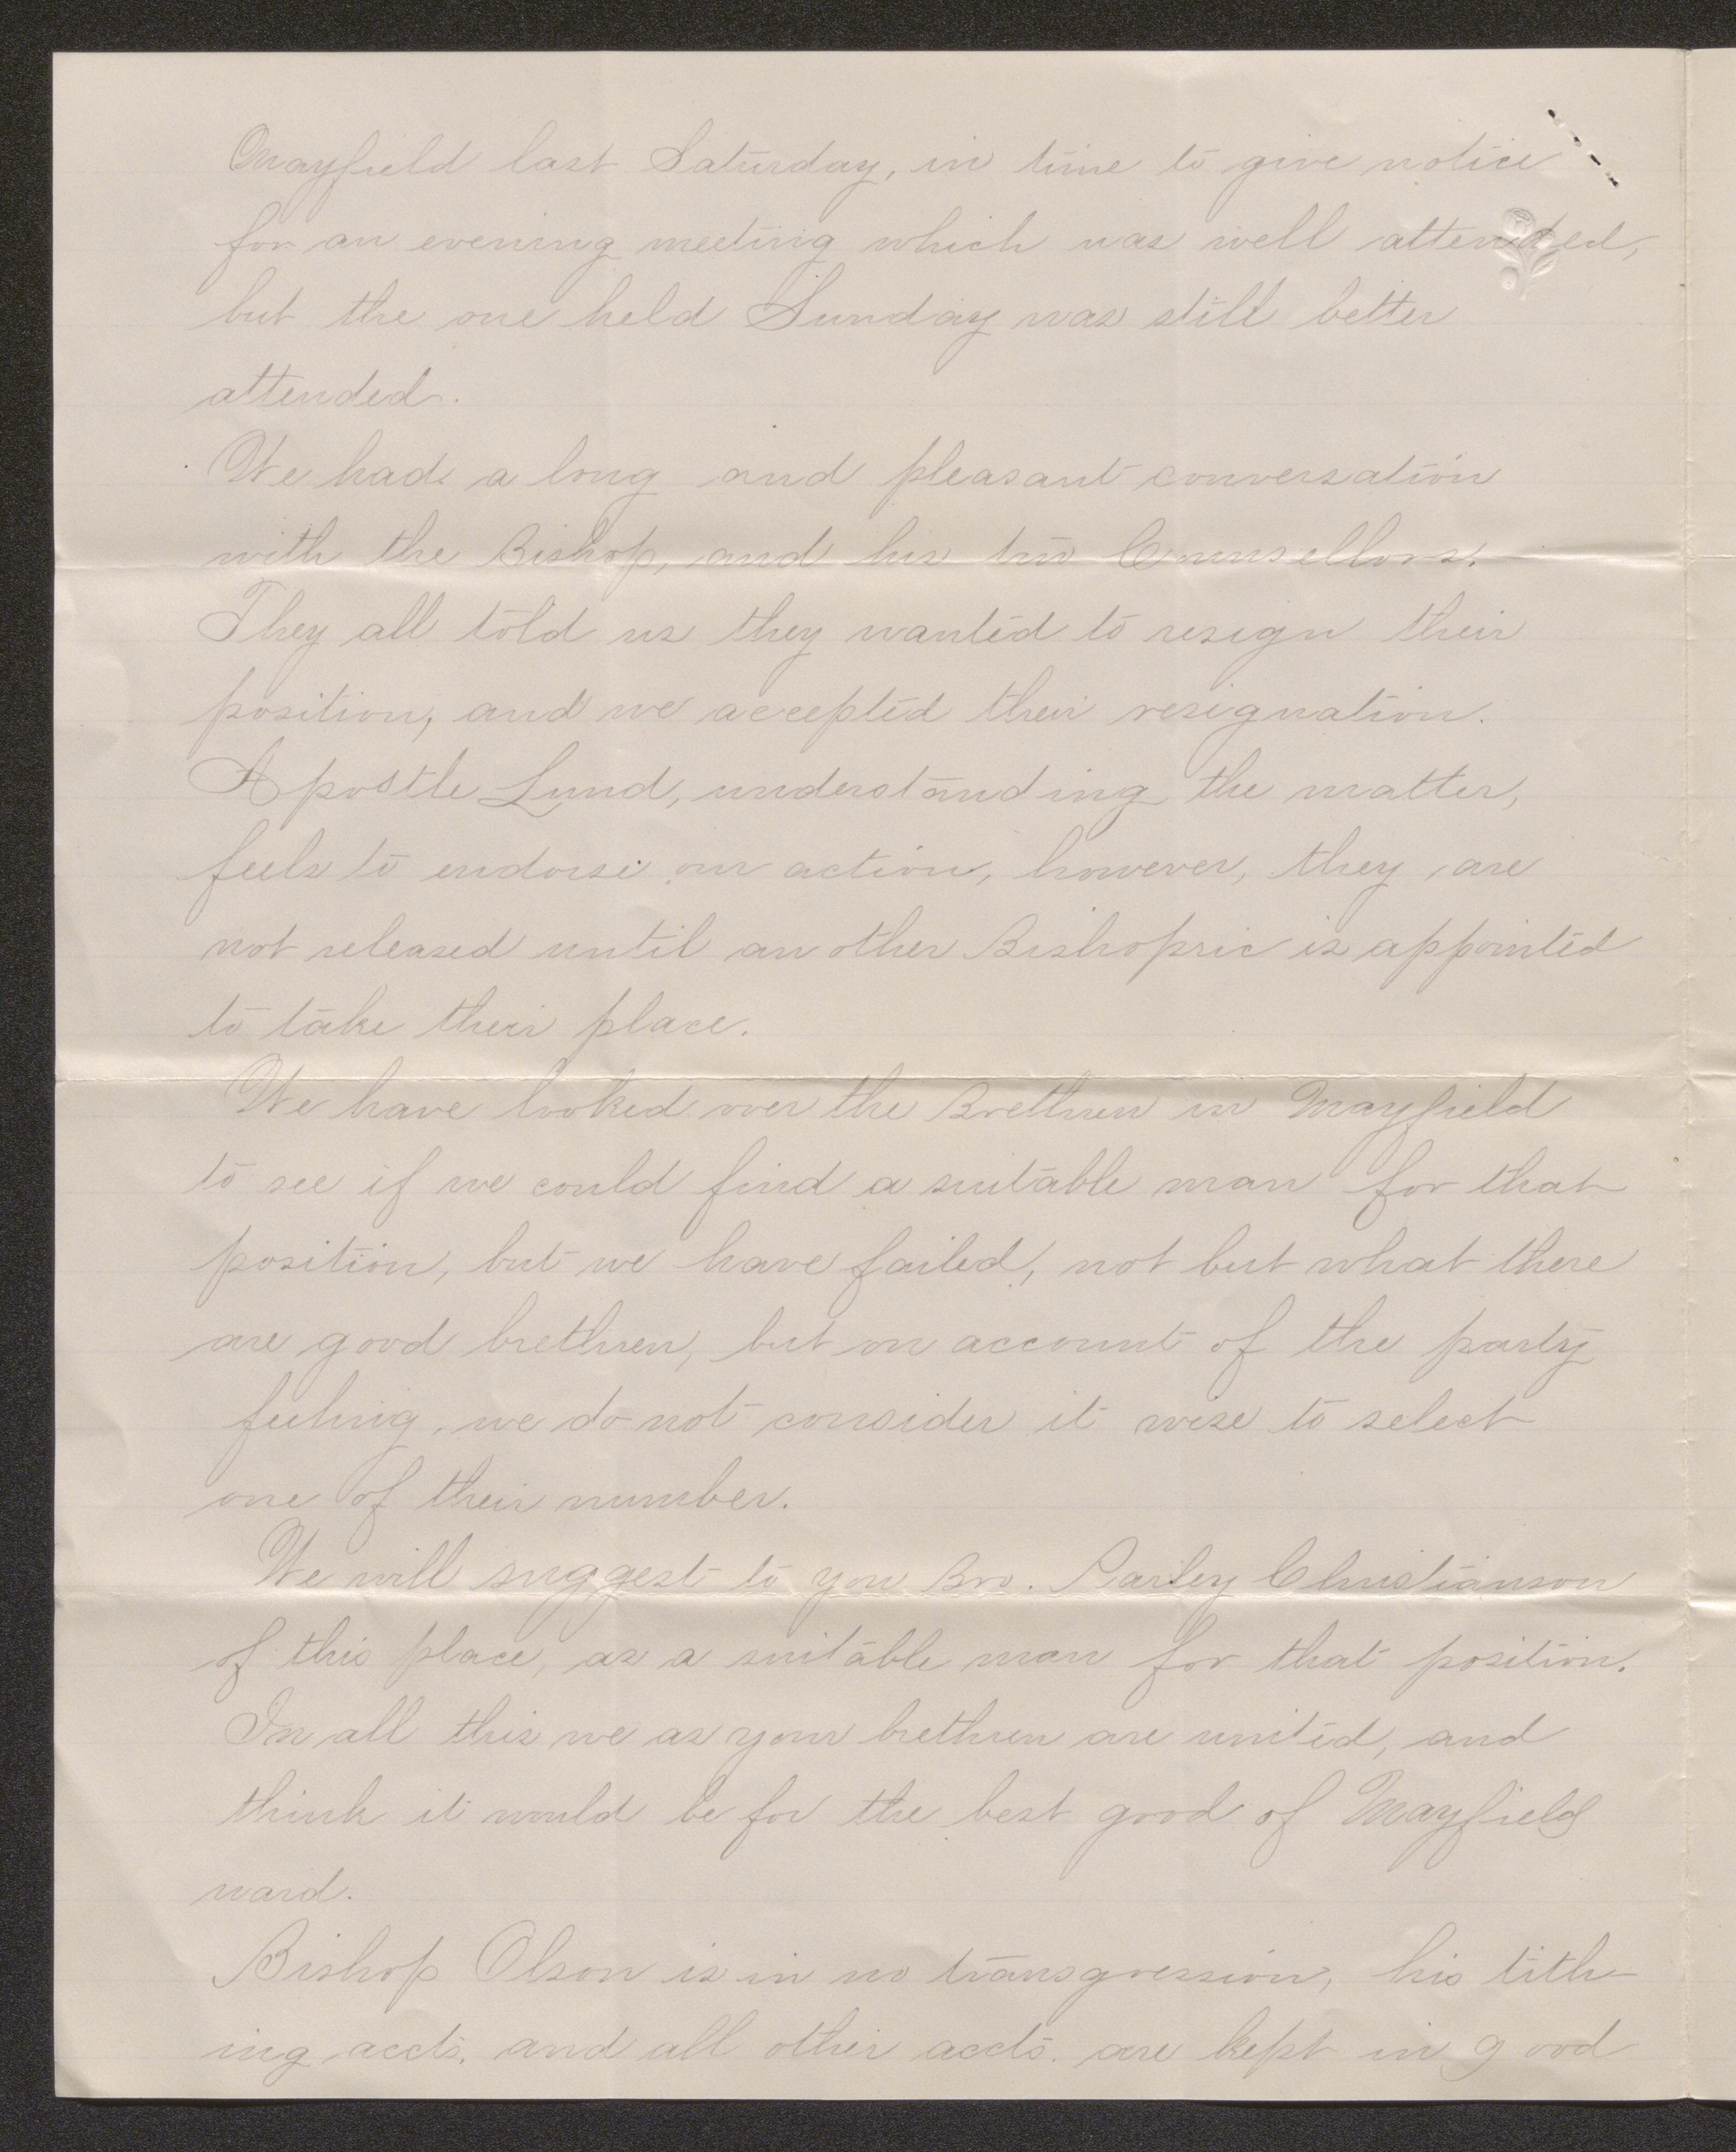 Mayfield last Saturday, in time to give notice
for an evening meeting which was well attended,
but the one held Sunday was still better
attended.
We had a long and pleasant conversation
with the Bishop, and his two Counsellors.
They all told us they wanted to resign their
position, and we accepted their resignation.
Apostle Lund, understanding the matter,
feels to endorse our action, however, they are
not released until an other Bishopric is appointed
to take their place.
We have looked over the Brethren in Mayfield
to see if we could find a suitable man for that
position, but we have failed, not but what there
are good brethren, but on account of the party
feeling, we do not consider it wise to select
one of their number.
We will suggest to you Bro. Parley Christianson
of this place, as a suitable man for that position.
In all this we as your brethren are united, and
think it would be for the best good of Mayfield
ward.
Bishop Olson is in no transgression, his tith-
ing accts. and all other accts. are kept in good